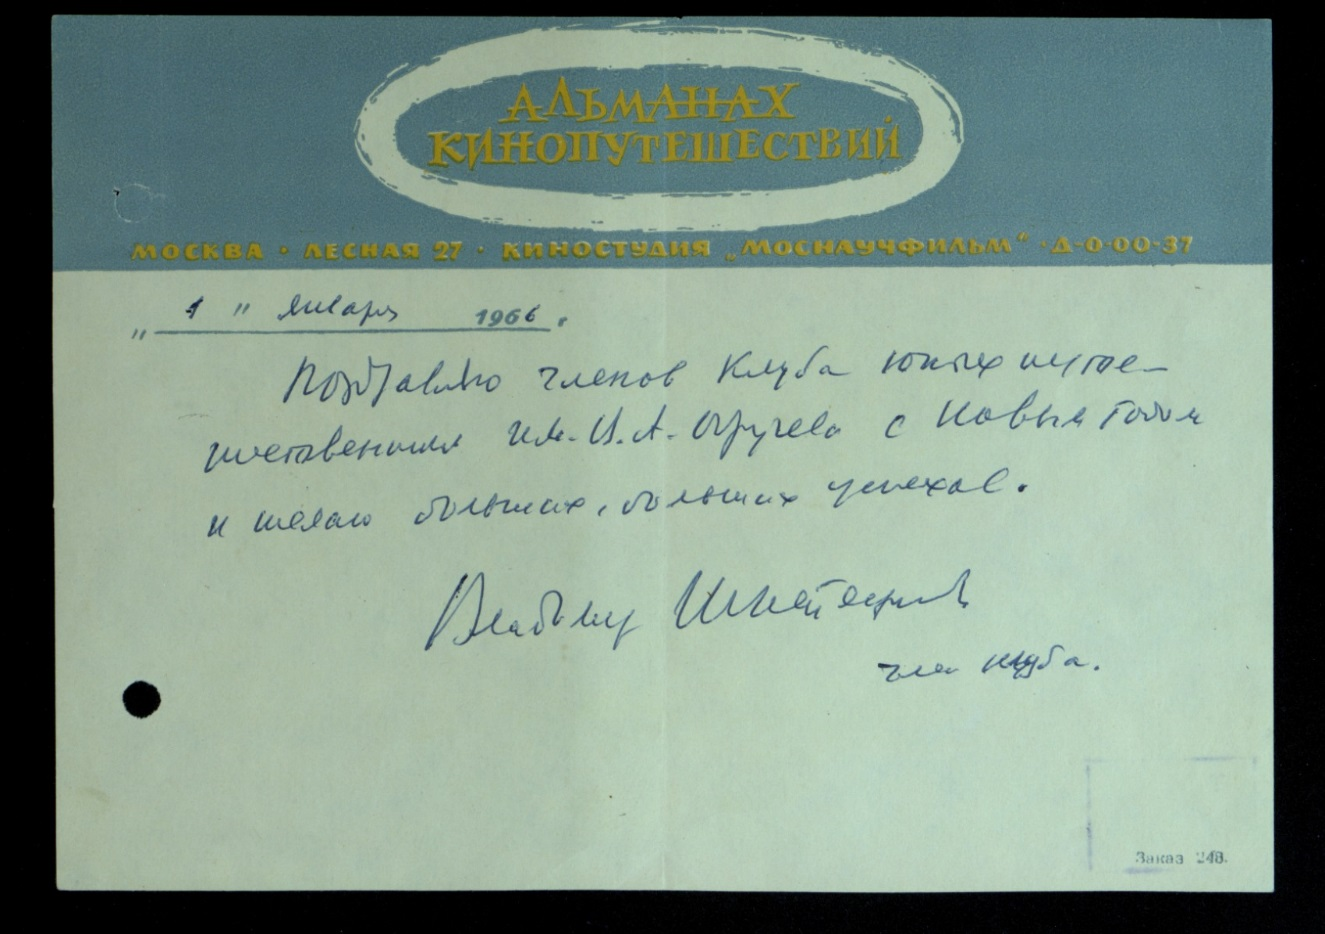 АЛЬМАНАХ
КИНОПУТЕШЕСТВИЙ
МОСКВА · ЛЕСНАЯ 27 · КИНОСТУДИЯ „МОСНАУЧФИЛЬМ“ · Д-0-00-37
„ 1 " января 1966.
Поздравляю членов Клуба юных путе-
шественников им. В. А. Обручева с Новым Годом
и желаю больших, больших успехов.
Владимир Шнейдеров
член клуба.
Заказ 248.